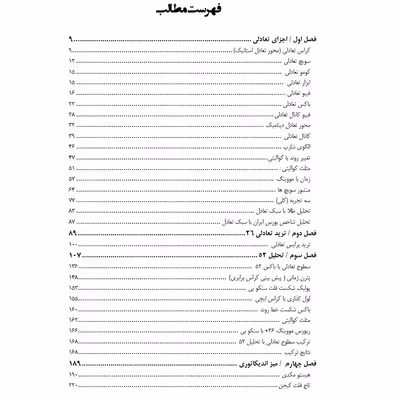 فهرست مطالب
فصل اول / اجزای تعادلی ۹
کراس تعادلی (محور تعادل استاتیک) ۹
سویچ تعادلی ۱۲
کومو تعادلی ۱۵
ابزار تعادلی ۱۵
فیبو تعادلی ۱۶
باکس تعادلی ۲۲
فیبو کانال تعادلی ۲۸
محور تعادل دینامیک ۳۲
کانال تعادلی ۳۹
الگوی شارپ ۴۶
تغییر روند با کوالیتی ۴۷
مثلث کوالیتی ۵۱
زمان یا موویتگ ۵۷
منشور سویچ ها ۶۴
سه تجربه (کلی) ۷۷
تحلیل طلا با سبک تعادل ۸۳
تحلیل شاخص بورس ایران با سبک تعادل ۸۷
فصل دوم / ترید تعادلی ۲۶ ۸۹
ترید پرایس تعادلی ۱۰۰
فصل سوم / تحلیل ۵۲ ۱۰۷
سطوح تعادلی یا باکس ۵۲ ۱۳۶
پترن زمانی ( پیش بینی کراس برابری) ۱۴۸
پولبک شکست فلت سنکو بی ۱۵۳
اول کناری با کراس ایچی ۱۵۵
باکس شکست خط روند ۱۶۰
مثلث کوالیتی ۱۶۲
ریورس موونگ ۲۶+ با سنکو بی ۱۶۶
ترکیب سطوح تعادلی با تحلیل ۵۲ ۱۶۸
نتایج ترکیب ۱۶۸
فصل چهارم / میز اندیکاتوری ۱۸۹
هیستو مکدی ۱۹۰
تاچ فلت کیجن ۲۲۰